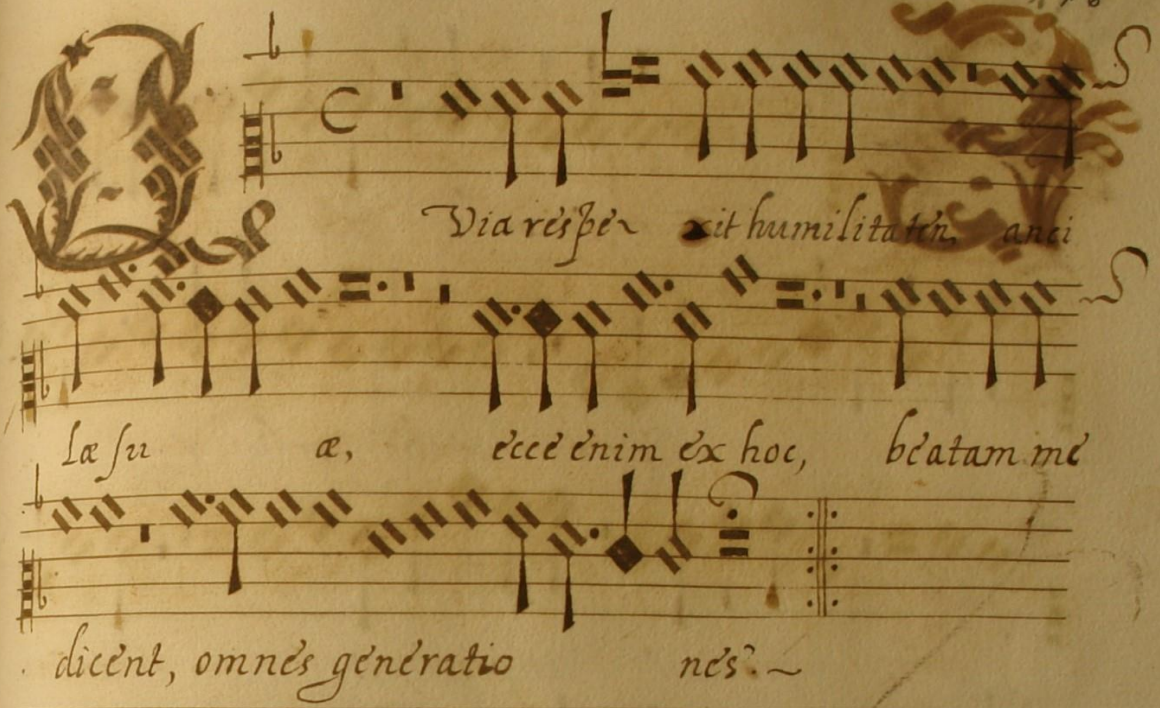 Q Via respe xit humilitatem anci
læ su æ, ecce enim ex hoc, beatam me
dicent, omnes generatio nes.